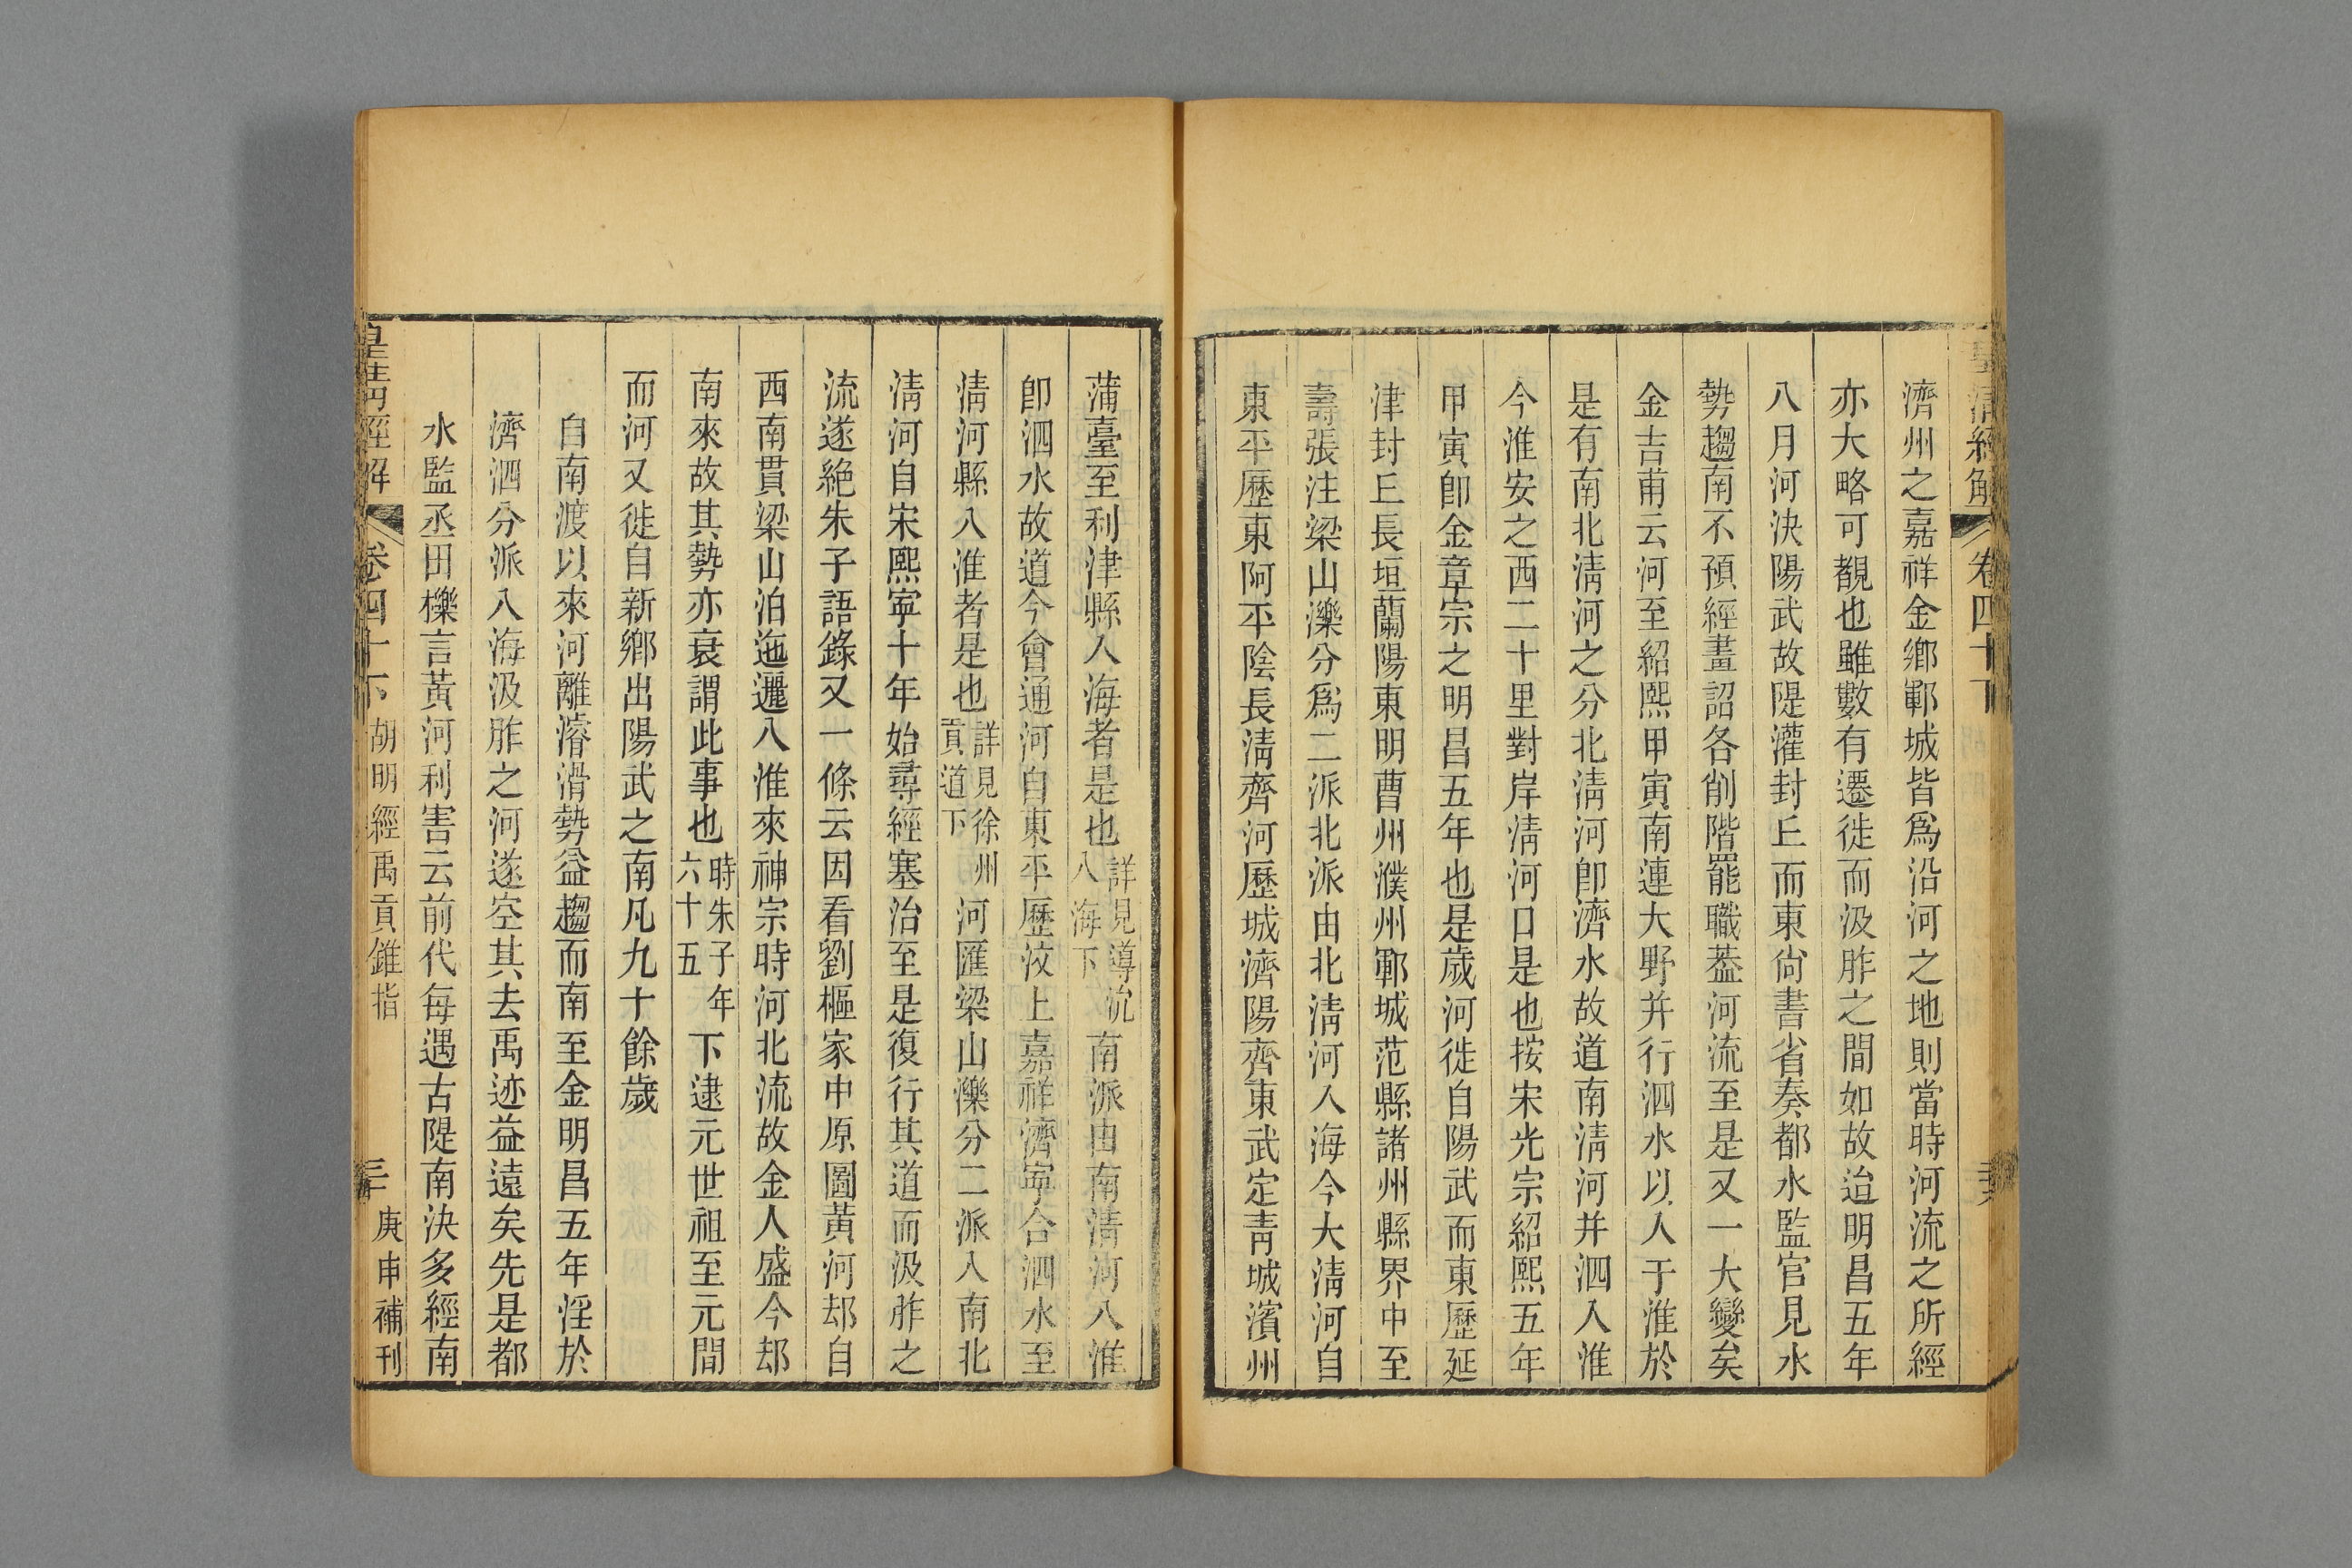 皇清經解 卷四十下
濟州之嘉祥金鄉鄆城皆爲沿河之地則當時河流之所經
亦大略可覩也雖數有遷徙而汲胙之間如故迨明昌五年
八月河決陽武故隄灌封丘而東尙書省奏都水監官見水
勢趨南不預經畫詔各削階罷職葢河流至是又一大變矣
金吉甫云河至紹熙甲寅南連大野幷行泗水以入于淮於
是有南北淸河之分北淸河卽濟水故道南淸河幷泗入淮
今淮安之西二十里對岸淸河口是也按宋光宗紹熙五年
甲寅卽金章宗之明昌五年也是歲河徙自陽武而東歷延
津封丘長垣蘭陽東明曹州濮州鄆城范縣諸州縣界中至
壽張注梁山濼分爲二派北派由北淸河入海今大淸河自
東平歷東阿平陰長淸齊河歷城濟陽齊東武定靑城濱州
蒲臺至利津縣入海者是也詳見導沇入海下南派由南淸河入淮
卽泗水故道今會通河自東平歷汶上嘉祥濟寧合泗水至
淸河縣入淮者是也詳見徐州貢道下河匯梁山濼分二派入南北
淸河自宋熙寧十年始尋經塞治至是復行其道而汲胙之
流遂絶朱子語錄又一條云因看劉樞家中原圖黃河却自
西南貫梁山泊迤邐入淮來神宗時河北流故金人盛今却
南來故其勢亦衰謂此事也時朱子年六十五下逮元世祖至元間
而河又徙自新鄉出陽武之南凡九十餘歲
自南渡以來河離濬滑勢益趨而南至金明昌五年淫於
濟泗分派入海汲胙之河遂空其去禹迹益遠矣先是都
水監丞田櫟言黃河利害云前代每遇古隄南決多經南
皇淸經解 卷四十下 胡明經禹貢錐指 庚申補刊